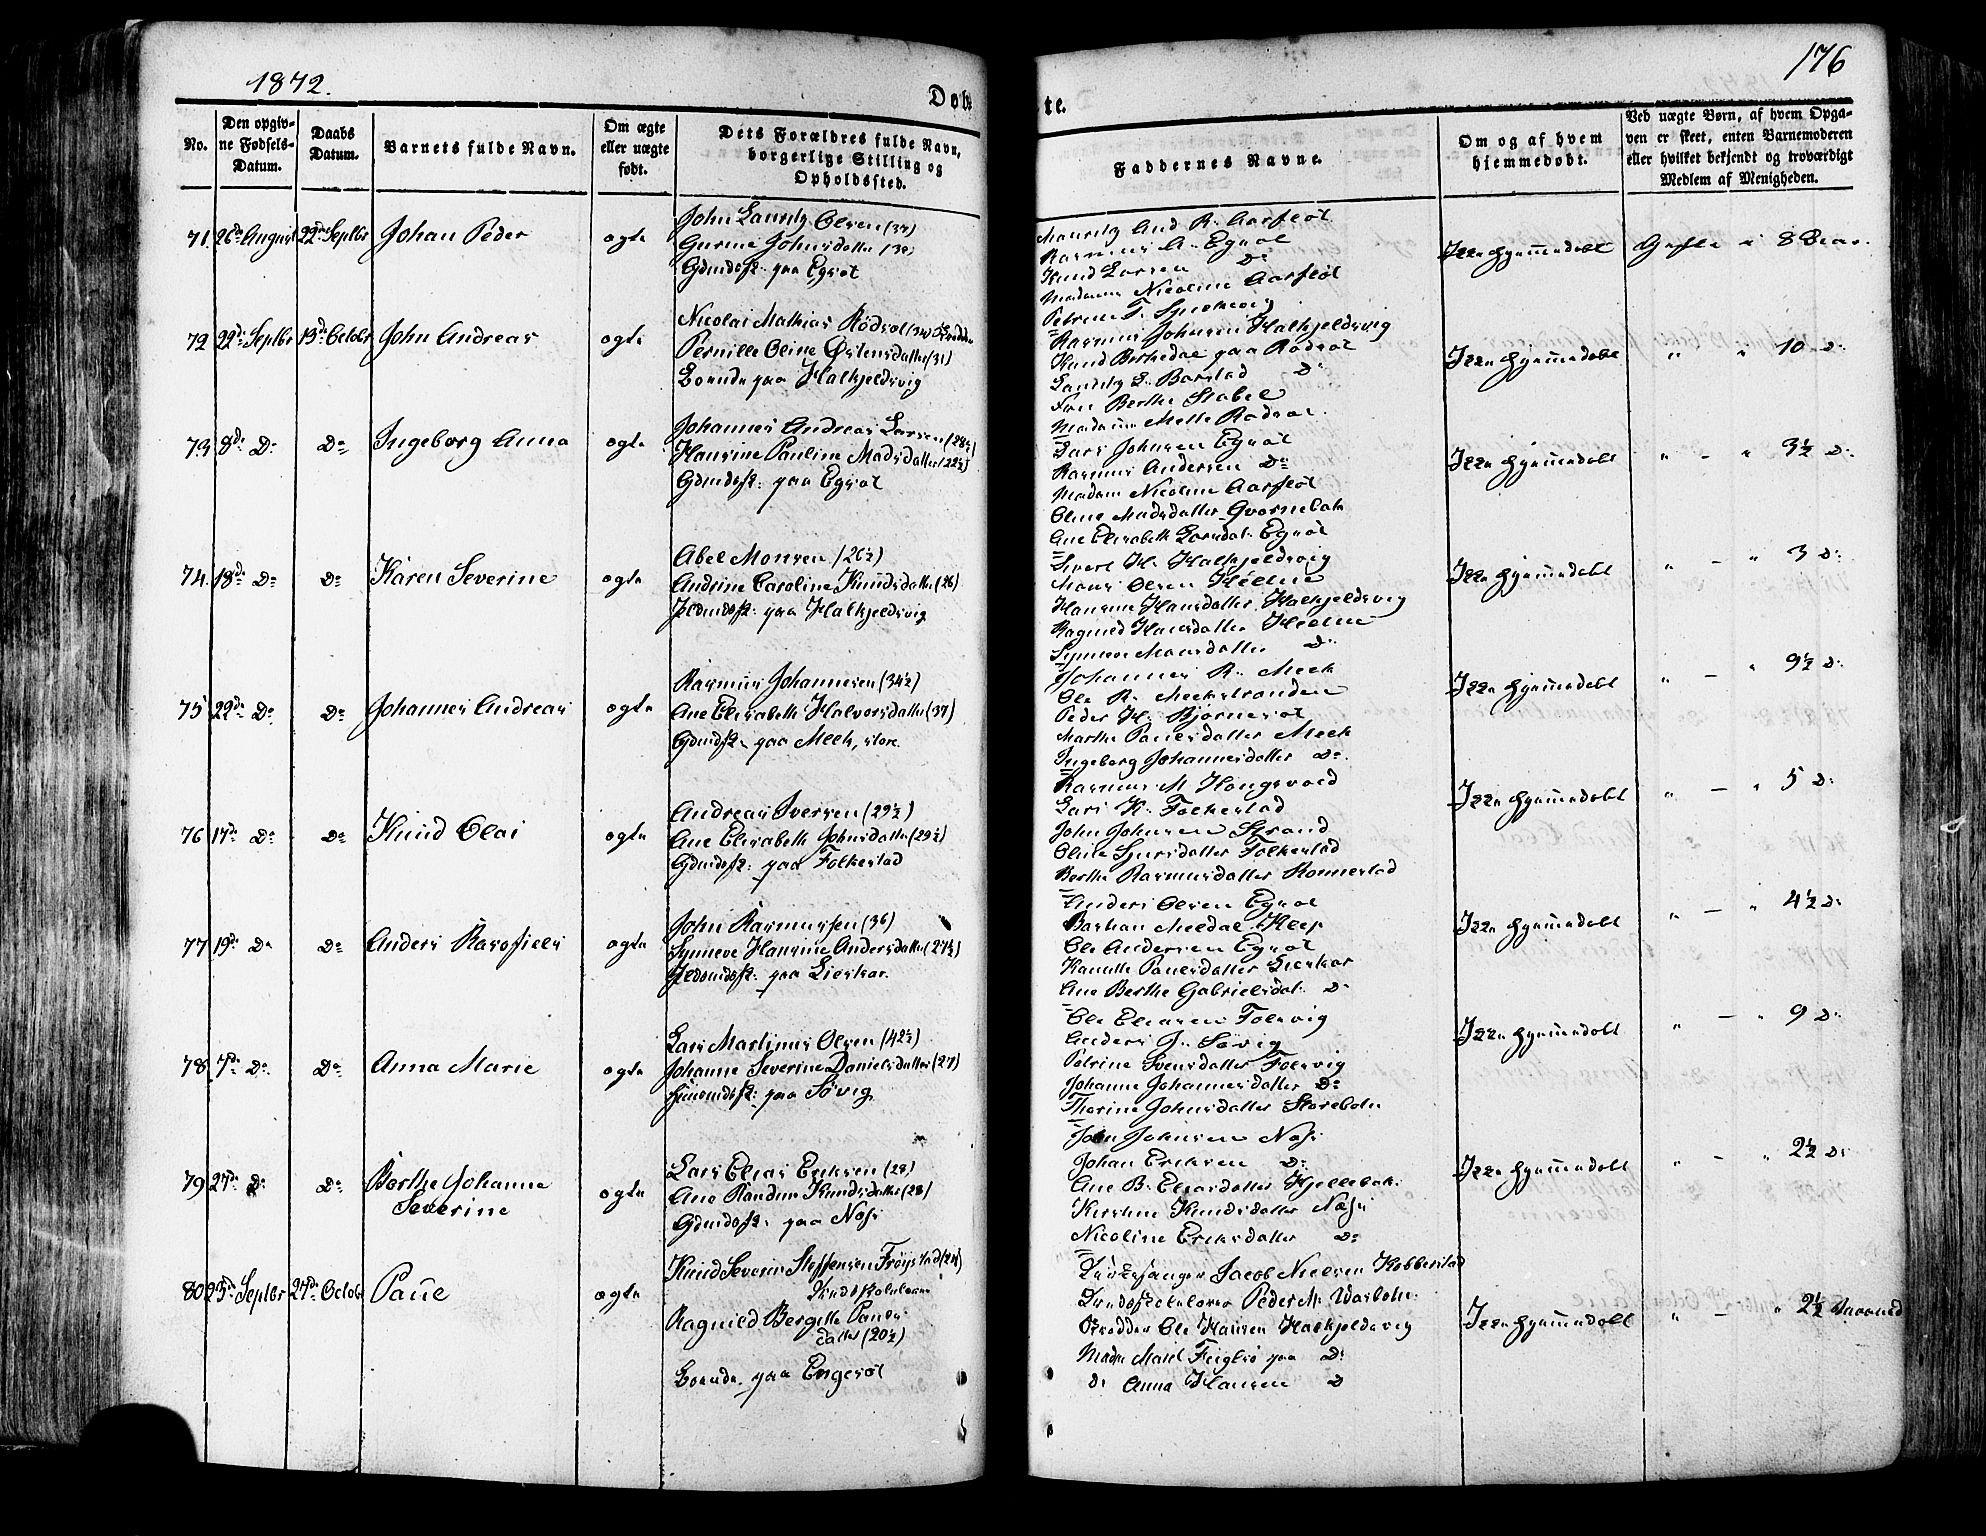 1872.
176
Døb
te.
No.
Den opgiv-
ne Fødsels-
Datum.
Daabs
Datum.
Barnets fulde Navn.
Om ægte
eller uægte
født.
Dets Forældres fulde Navn,
borgerlige Stilling og
Opholdssted.
Faddernes Navne.
Om og af hvem
hjemmedøbt.
Ved uægte Børn, af hvem Opga-
ven er skeet, enten Barnemoderen
eller hvilket bekjendt og troværdigt
Medlem af Menigheden.
71. 26de August 22de Septbr Johan Peder ægte
John Lauritz Olsen
Gurine Johnsdatter
Gdmdsf: paa Egsæt
Mauritz And R. Aarflot
Rasmus A. Egsæt
Knud Larsen Do
Madame Nicoline Aarflot
Petrine T.
Ikke hjemmedøbt Gifte i 8 Aar.
72 22de Septbr 13de Octobr John Andreas ægte
Nicolai Mathias Rødsæt
Pernille Oline Østensdatter (31)
Boende paa Halkjeldsvig
Rasmus Johnsen Halkjeldsvig
Knud Berkedal paa Rødsæt
Lauritz L. Barstad Do
Frue Berthe Stabel
Madame Mette Rødsæt.
Ikke hjemmedøbt " " 10 D:
73 8de Do Do Ingeborg Anna ægte
Johannes Andreas Larsen (28½)
Hansine Pauline Madsdatter (22½)
Gdmdsf: paa Egsæt
Lars Johnsen Egsæt
Rasmus Andersen Do
Madam Nicoline Aarflot
Oline Madsdatter
Ane Elisabeth Egsæt
Ikke hjemmedøbt " - " 3½ D:
74. 18de Do Do Karen Severine ægte
Abel Monsen (26½)
Andrine Caroline Knudsdatter (26)
paa Halkjeldsvig
Sivert H. Halkjeldsvig
Mons Olsen
Hansine Hansdatter Halkjeldsvig
Ragnild Hansdatter
Synneve Monsdatter Do
Ikke hjemmedøbt " - " 3 D:
75 29de Do Do Johannes Andreas ægte
Rasmus Johannesen (34½)
Ane Elisabeth Halvorsdatter (37)
Gdmdsf: paa Meek, store.
Johannes R. Meek
Ole R. Meekstranden
Peder H. Bjørnesæt
Marthe Pauesdatter Meek
Ingeborg Johannesdatter Do.
Ikke hjemmedøbt " - " 9½ D:
76 17de Do Do Knud Olai ægte
Andreas Iversen (29½)
Ane Elisabeth Johnsdatter (29½)
Gdmdsf: paa Folkestad
Rasmus M
Lars K. Folkestad
John Johnsen Strand
Oline Sjursdatter Folkestad
Berthe Rasmusdatter Rønnestad
Ikke hjemmedøbt " - " 5 D:
77 19de Do Do Anders ægte
John Rasmussen (36)
Synneve Hansine Andersdatter (27½)
paa Lieskar.
Anders Olsen Egsæt
Bastian Meldal Kleep
Ole Andersen Egsæt
Pauesdatter Lieskar
Ane Berthe Gabrielsdat: Do
Ikke hjemmedøbt " - " 4½ D:
78 7de Do Do Anna Marie ægte
Lars Martinus Olsen (42½)
Johanne Severine Danielsdatter (27)
Huusmdsf: paa Søvig
Ole Eliasen Folevig
Anders J. Søvig
Petrine Svensdatter Folevig
Johanne Johannesdatter Do
Therine Johnsdatter
Ikke hjemmedøbt " - " 9 D:
79 27de Do Do Berthe Johanne
Severine ægte
Lars Elias Eriksen (28)
Ane Randine Knudsdatter (28)
Gdmdsf: paa Næs
John Johnsen Næs
Johan Eriksen Do
Ane B. Eliasdatter
Kirstine Knudsdatter Næss
Nicoline Eriksdatter Do
Ikke hjemmedøbt " - " 2½ D:
80 25de Septbr 27de Octobr Paue ægte
Knud Severin Steffensen Frøystad (24)
Ragnild Bergitte Paues
datter (20½)
Boende paa Engesæt
Kirkesanger Jacob Nielsen Kobberstad
Peder M.
Ole Hansen Halkjeldsvig
paa Do
Do Anna Hansen Do
Ikke hjemmedøbt " - " 2½ Maaned